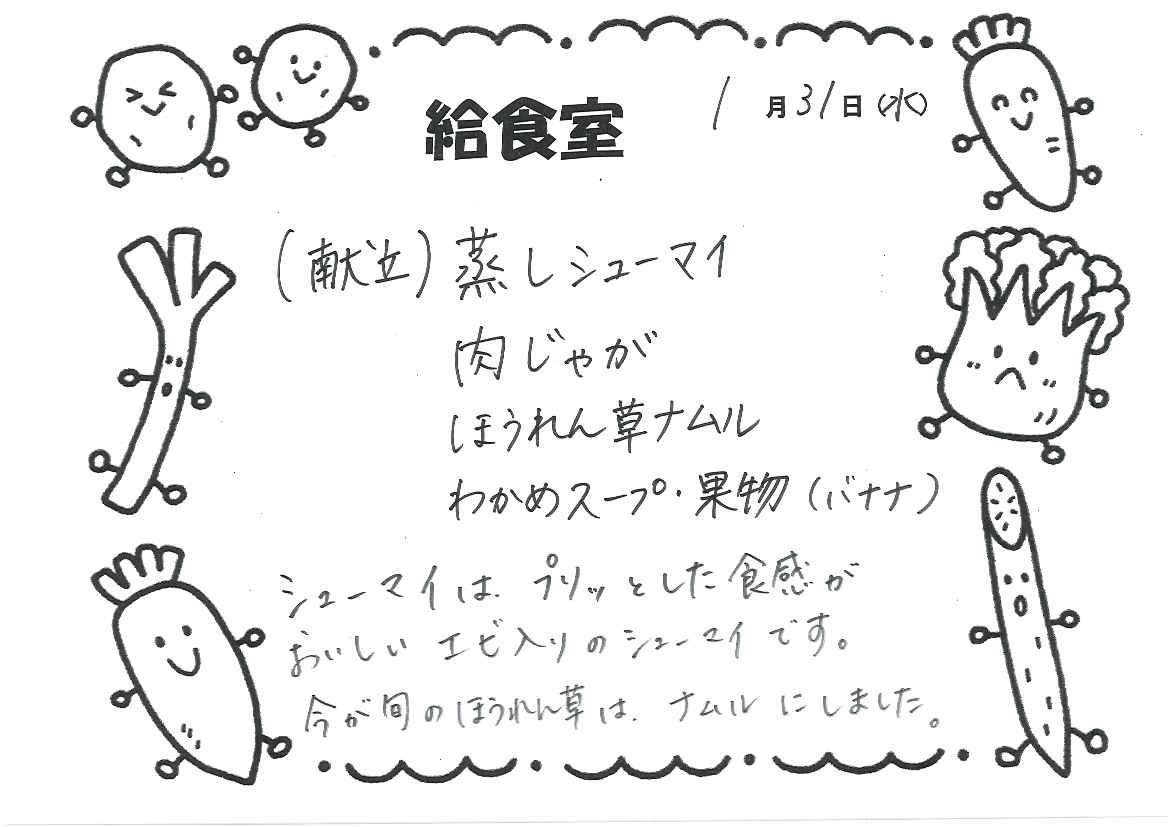 給食室
1月31日(水)
(献立)蒸しシューマイ
肉じゃが
ほうれん草ナムル
わかめスープ・果物(バナナ)
シューマイは、プリッとした食感が
おいしいエビ入りのシューマイです。
今が旬のほうれん草は、ナムルにしました。